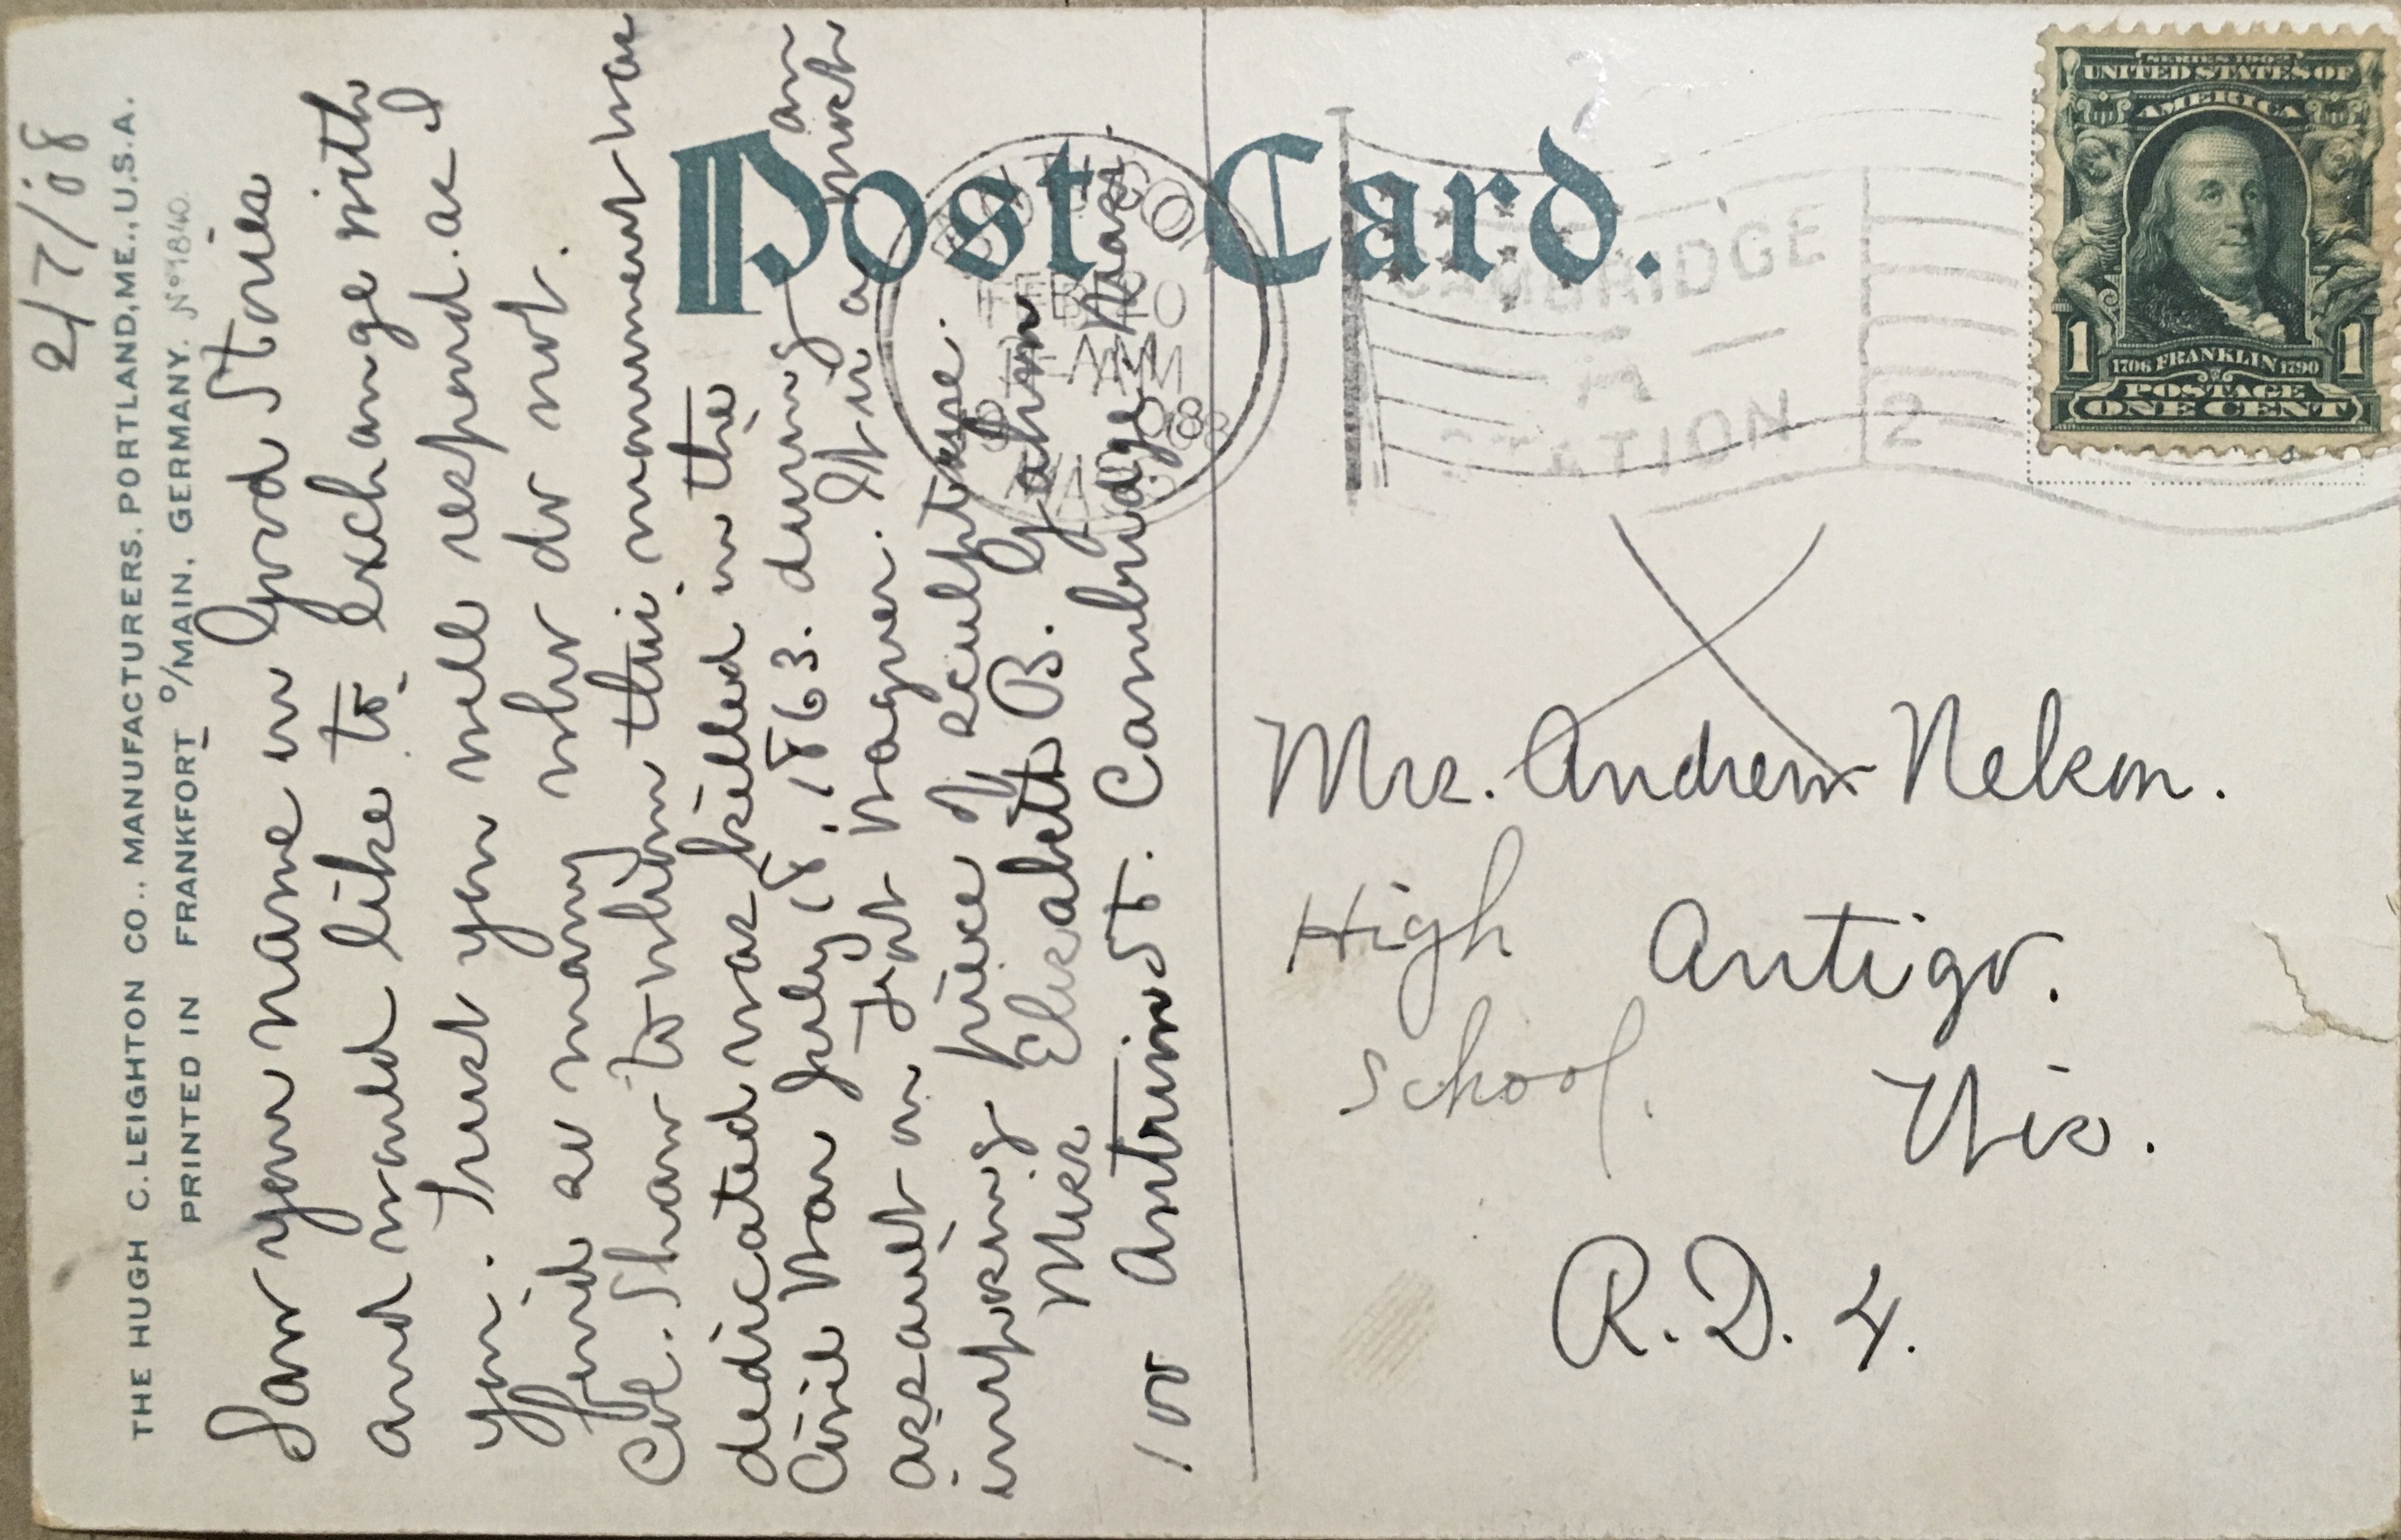 2/7/08
THE HUGH C. LEIGHTON CO., MANUFACTURERS, PORTLAND, ME., U.S.A.
PRINTED IN FRANKFORT o/MAIN, GERMANY. No 1840.
Saw your name in Good Stories
and would like to exchange with
you. Trust you will respond. as I
find so many who do not.
Col. Shaw to whom this monument was
dedicated was killed in the
Civil War July 18, 1863. during an
assault on Fort Wagner. It is a much
imposing piece of sculpture.
Miss Elizabeth B. Gahm
100 Antrim St. Cambridge. Mass.
Post Card.
BOSTON
FEB 10
AM
08
MASS
CAMBRIDGE
A
STATION
2
SERIES 1902
UNITED STATES OF
AMERICA
1
1706 FRANKLIN 1790
1
POSTAGE
ONE CENT
Mrs. Andrew Nelson.
High
School.
Antigo.
Wis.
R.D. 4.